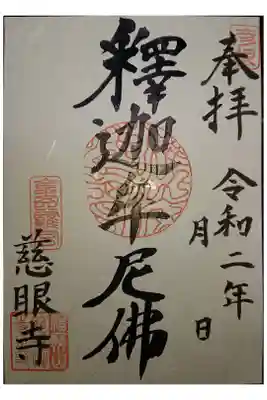 奉拝
令和二年 月 日
釋迦牟尼佛
慈眼寺